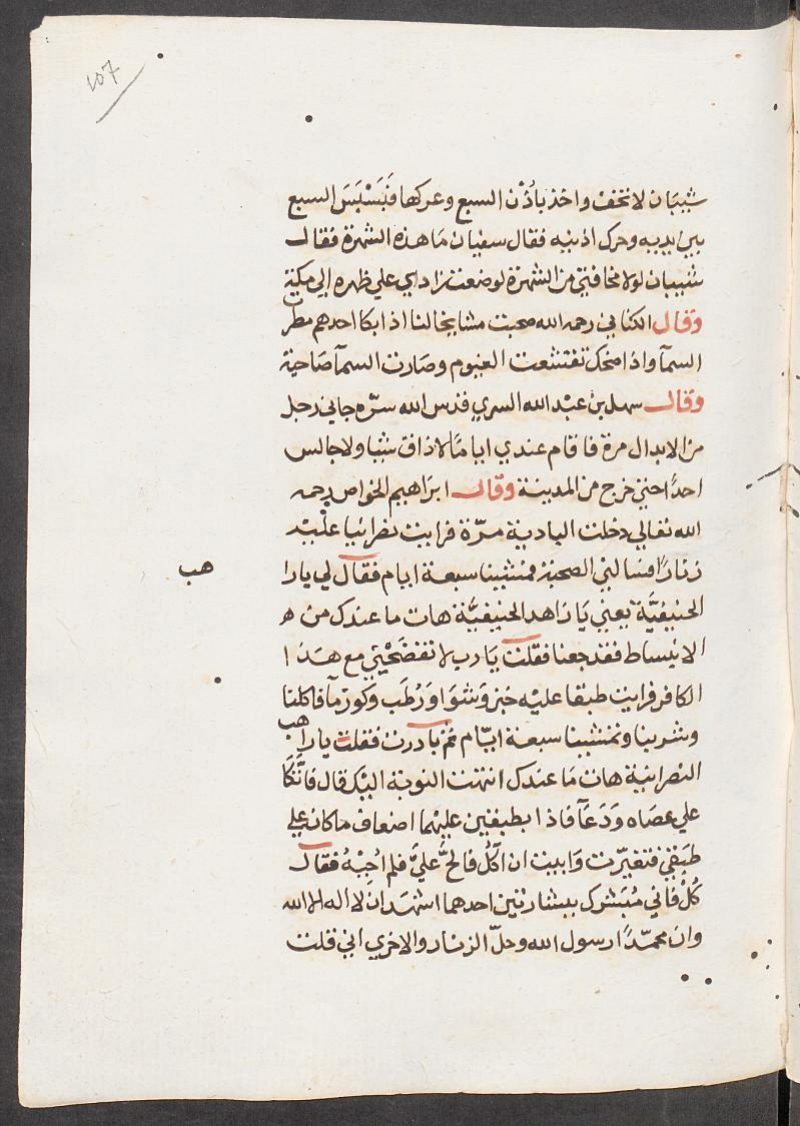 107
شيبان لا تخف واخذ باُذْن السبع وعركها فَبَسْبَسَ السبع
بين يديه وحرك اذنيه فقال سفيان مَا هذه الشهرة فقال
شيبان لولا مخافتي من الشهرة لوضعت زادي علي ظهره الي مكة
وقال الكتاني رحمه الله صحبت مشايخا لنا اذا بكا احدهم مطرت
السمآ واذا ضحك تقتشعت الغيوم وصارت السمآ صَاحية
وقال سهل بن عبْد الله السري قدس الله سرّه جاني رجل
من الابدال مرة فاقام عندي ايامًا لا ذاق شيا ولا جالس
احدًا حتي خرج من المدينة وقال ابرَاهيم الخواص رحمه
الله تعالي دخلت البادية مرّة فرايت نصرانيا علَيْه
زنارًا فسالني الصحبة فمشينا سبعة ايام فقال لي يارا
هب
الحنيفيَّة يعني يَا زاهد الحنيفيَّة هات ما عندك من ه
الانبساط فقد جعنا فقلت يَارب لا تفضَحْني مع هَذا
الكافر فرايت طبقا عليْه خبز وَشوَا وَرُطَب وَكوز مآ فاكلنا
وشربنا وتمشينا سبعة ايّام ثم بادرت فقلت يا راهب
النصرانية هات مَا عندك انتهت النوبة اليْك قال فاتَّكَا
علي عصَاه وَدَعَآ فاذا بطبقين عليْهما اضعاف ما كان علي
طبَقي فتغيّرت وَابيت ان آكُل فالحَّ عليَّ فلم اُجِبْهُ فقال
كُلْ فاني مُبَشرك ببشارتين احدهما اشهَد ان لا اله الا الله
وان محمّدًا رسول الله وحلّ الزنار والاخري اني قلت